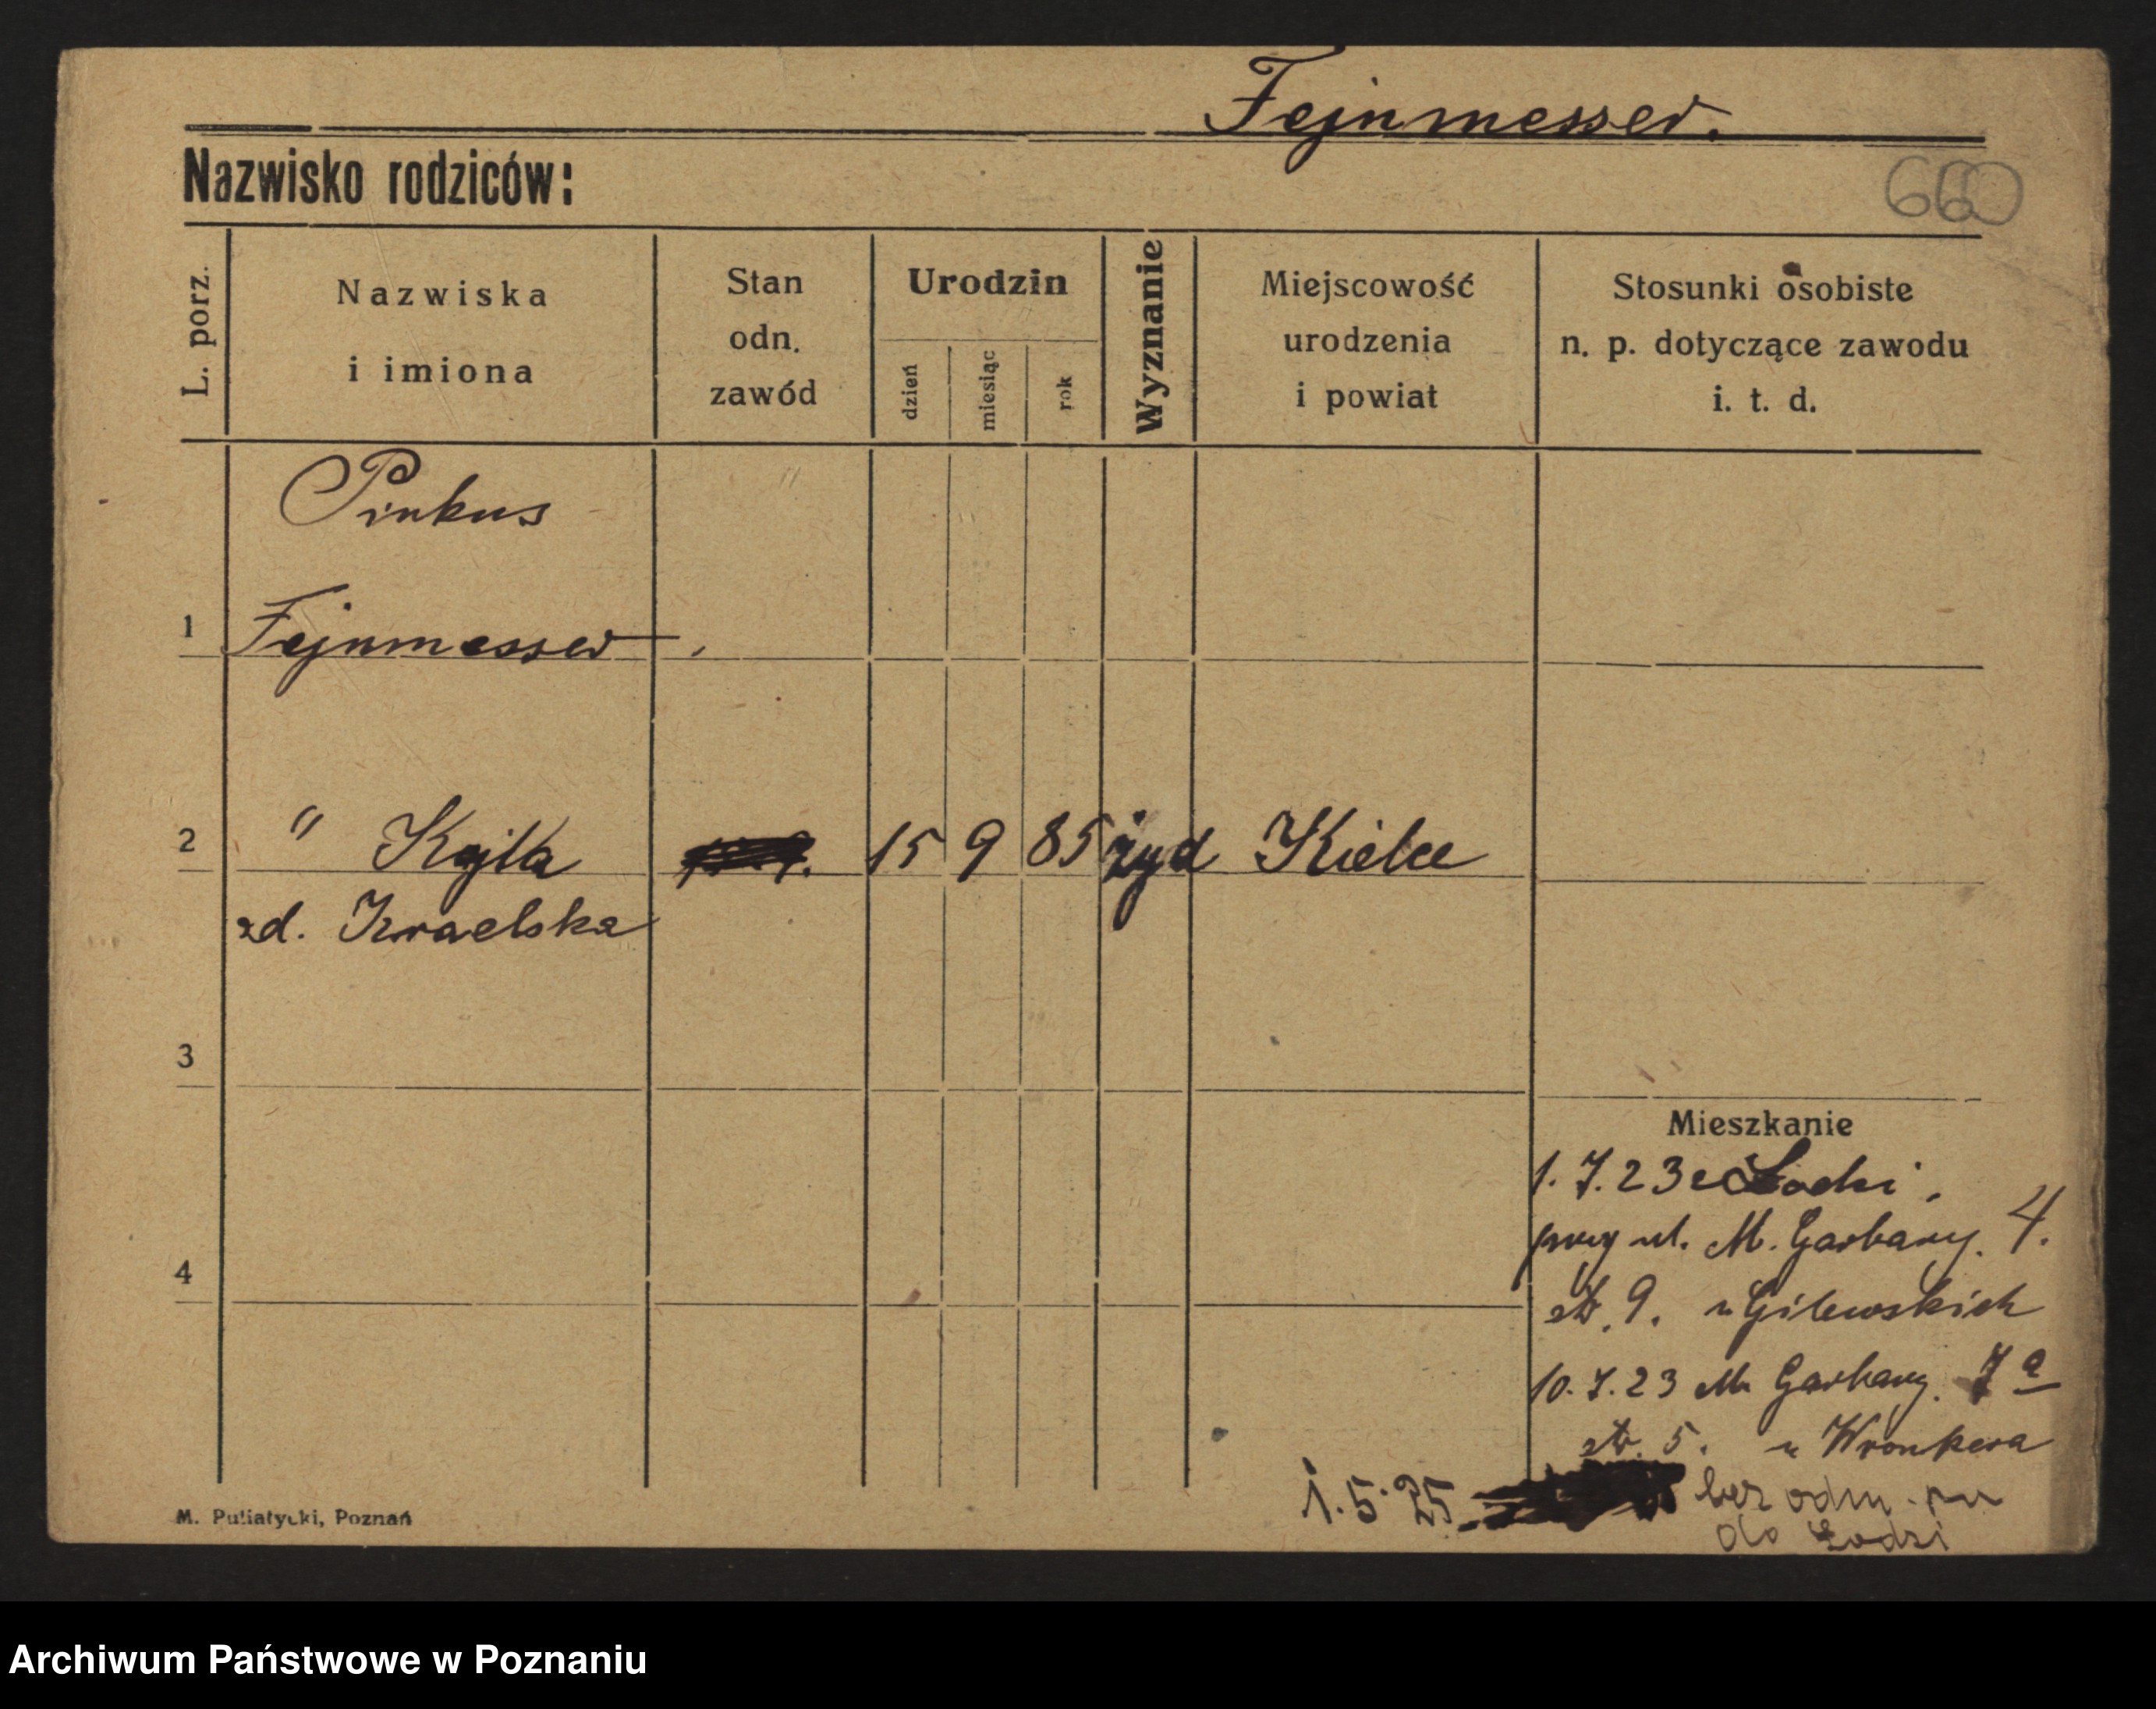 Fejnmesser.
Nazwisko rodziców:
660
L. porz.
Nazwiska
i imiona
Stan
odn.
zawód
Urodzin
dzień
miesiąc
rok
Wyznanie
Miejscowość
urodzenia
i powiat
Stosunki osobiste
n. p. dotyczące zawodu
i. t. d.
Pinkus
1 Fejnmesser.
2 " Kajla 15 9 85 żyd Kielce
zd. Izraelska
3
Mieszkanie
1. 7. 23 z Łodzi.
przy ul. M. Garbary. 4.
4
str. 9. u Gilewskich
10. 7. 23 M. Garbary. 7a
str. 5. u Wronkera
1. 5. 25 bez odm.
do Łodzi
M. Putiatycki, Poznań
Archiwum Państwowe w Poznaniu